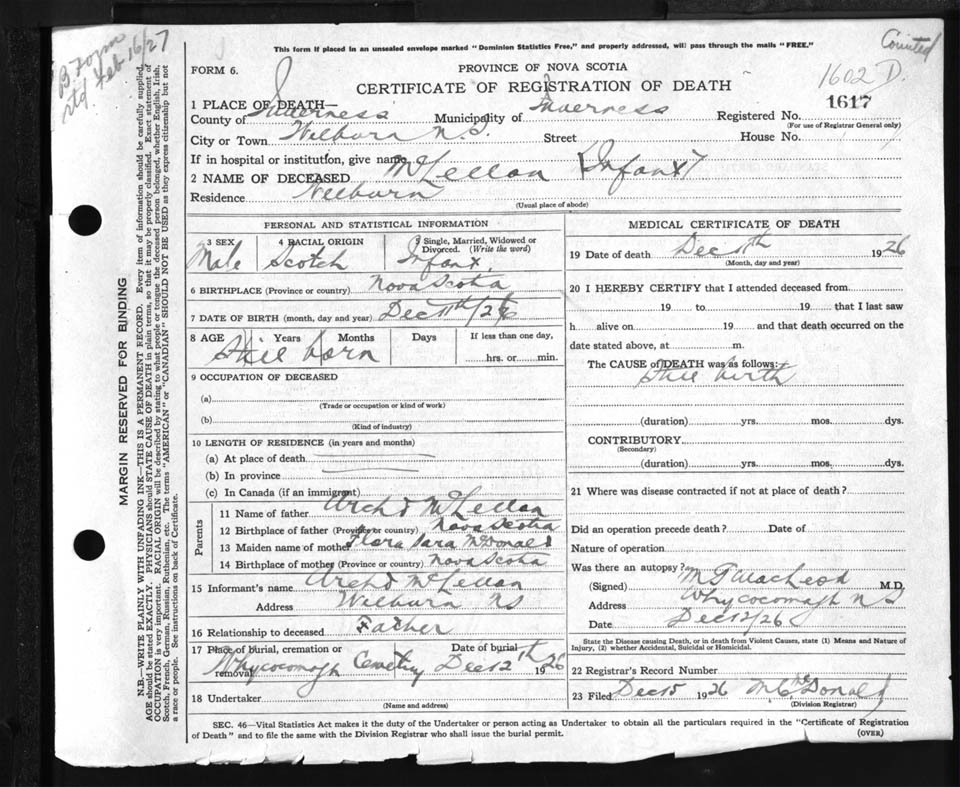 B Form
std. Feb 16/27
Counted
This form if placed in an unsealed envelope marked "Dominion Statistics Free," and properly addressed, will pass through the mails "FREE."
FORM 6.
PROVINCE OF NOVA SCOTIA
CERTIFICATE OF REGISTRATION OF DEATH
1602 D.
1 PLACE OF DEATH—
County of Inverness Municipality of Inverness Registered No. 1617
(For use of Registrar General only)
City or Town Wilburn N.S. Street House No.
If in hospital or institution, give name
2 NAME OF DECEASED McLellan (Infant)
Residence Wilburn
(Usual place of abode)
PERSONAL AND STATISTICAL INFORMATION
3 SEX 4 RACIAL ORIGIN 5 Single, Married, Widowed or Divorced. (Write the word)
Male Scotch Infant
6 BIRTHPLACE (Province or country) Nova Scotia
7 DATE OF BIRTH (month, day and year) Dec 11th/26
8 AGE Years Months Days If less than one day,
Still born hrs. or min.
9 OCCUPATION OF DECEASED
(a)
(Trade or occupation or kind of work)
(b)
(Kind of industry)
10 LENGTH OF RESIDENCE (in years and months)
(a) At place of death
(b) In province
(c) In Canada (if an immigrant)
Parents
11 Name of father Archd McLellan
12 Birthplace of father (Province or country) Nova Scotia
13 Maiden name of mother Flora Sara McDonald
14 Birthplace of mother (Province or country) Nova Scotia
15 Informant's name Archd McLellan
Address Wilburn NS
16 Relationship to deceased Father
17 Place of burial, cremation or removal Date of burial
Whycocomagh Cemetry Dec 12th 1926
18 Undertaker
(Name and address)
MEDICAL CERTIFICATE OF DEATH
19 Date of death Dec 11th 1926
(Month, day and year)
20 I HEREBY CERTIFY that I attended deceased from
19 to 19 that I last saw
h alive on 19 and that death occurred on
date stated above, at m.
The CAUSE of DEATH was as follows:
Still birth
(duration) yrs. mos. dys.
CONTRIBUTORY
(Secondary)
(duration) yrs. mos. dys.
21 Where was disease contracted if not at place of death?
Did an operation precede death? Date of
Nature of operation
Was there an autopsy?
(Signed) M T MacLeod M.D.
Address Whycocomagh N S
Date Dec 12/26
State the Disease causing Death, or in death from Violent Causes, state (1) Means and Nature of
Injury, (2) whether Accidental, Suicidal or Homicidal.
22 Registrar's Record Number
23 Filed Dec 15 1926 McDonald
(Division Registrar)
SEC. 46—Vital Statistics Act makes it the duty of the Undertaker or person acting as Undertaker to obtain all the particulars required in the "Certificate of Registration
of Death" and to file the same with the Division Registrar who shall issue the burial permit. (OVER)
MARGIN RESERVED FOR BINDING
N.B.—WRITE PLAINLY WITH UNFADING INK—THIS IS A PERMANENT RECORD. Every item of information should be carefully supplied.
AGE should be stated EXACTLY. PHYSICIANS should STATE CAUSE OF DEATH in plain terms, so that it may be properly classified. Exact statement of
OCCUPATION is very important. RACIAL ORIGIN will be described by stating to what people or tongue the deceased person belonged, whether English, Irish,
Scotch, French, German, Russian, Ruthenian, etc. The terms "AMERICAN" or "CANADIAN" SHOULD NOT BE USED as they express citizenship but not
a race or people. See instructions on back of Certificate.